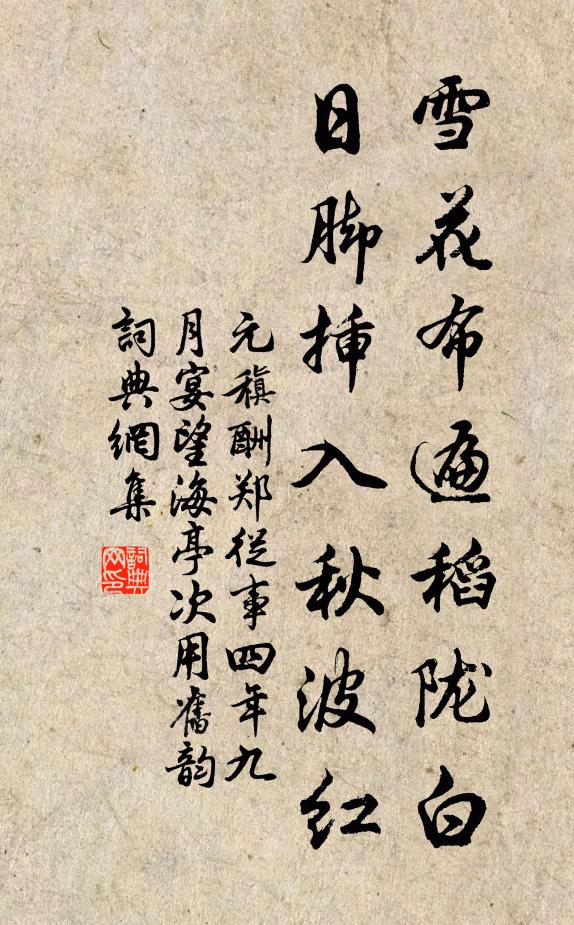 雪花布遍稻陇白
日脚揷入秋波红
元稹酬郑从事四年九
月宴望海亭次用舊韵
詞典網集
詞典网印